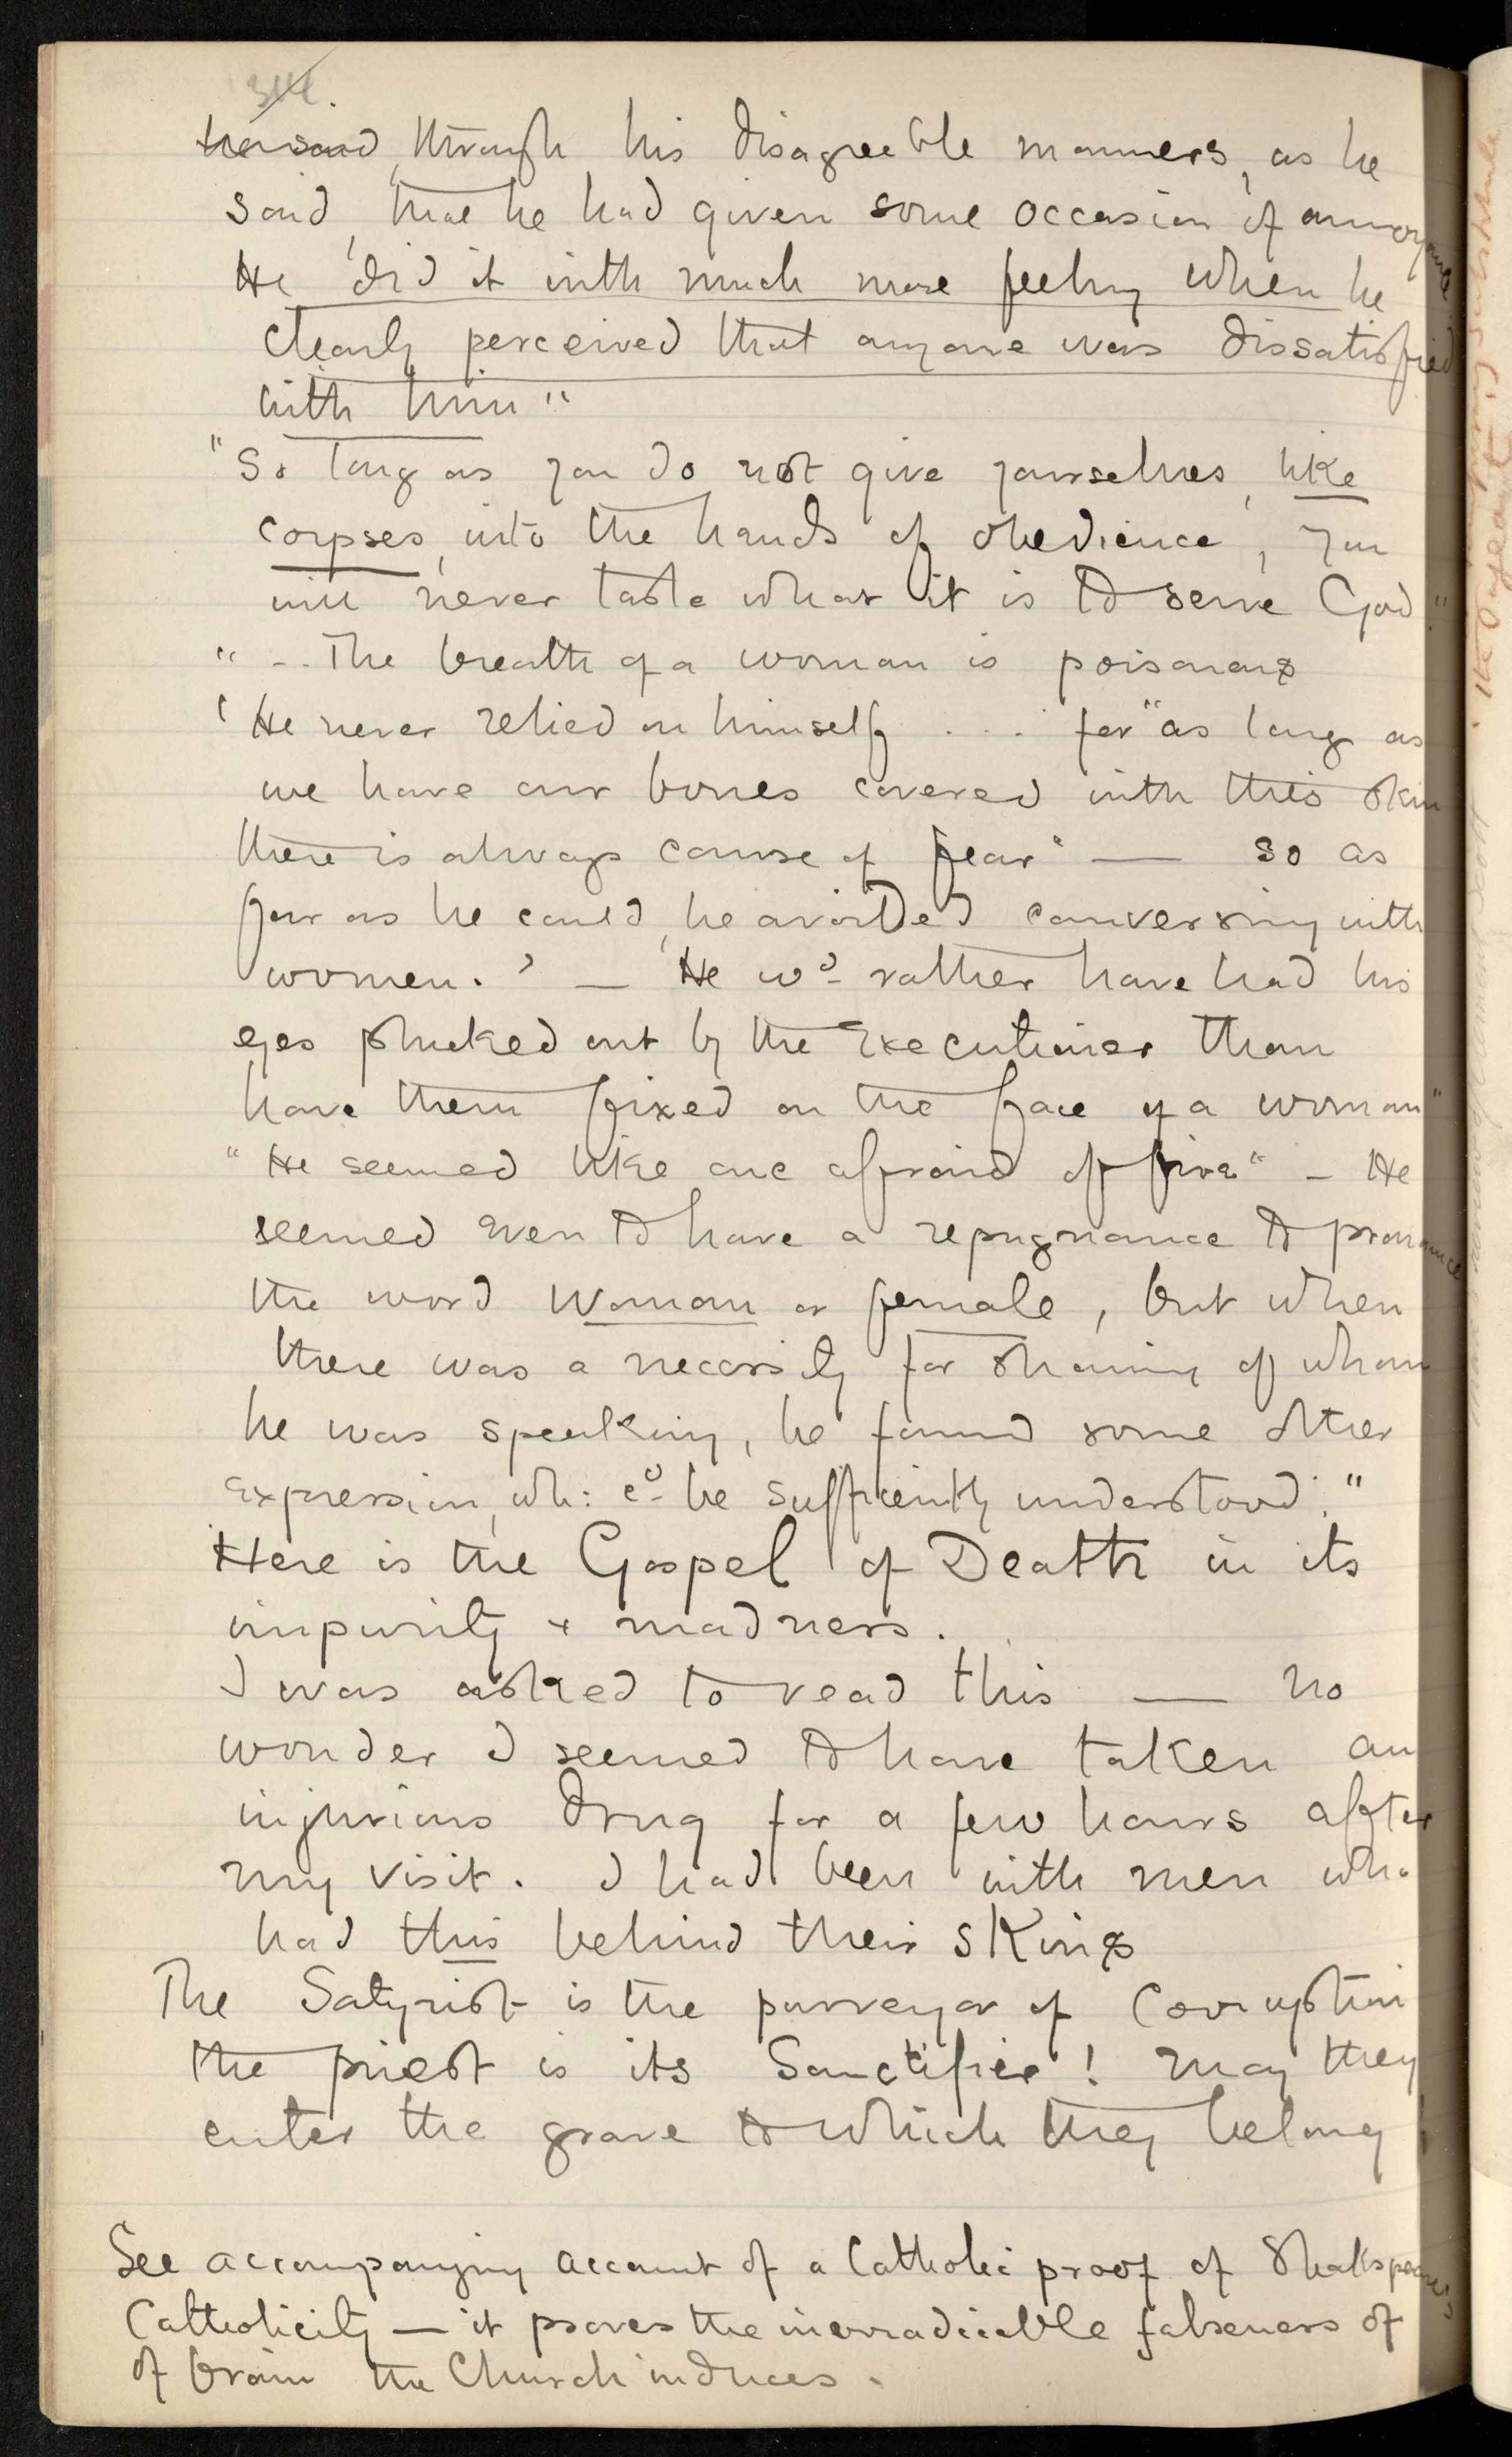 344.
he said, through his disagreeable manners, as he
said, that he had given some occasion of annoyance
He did it with much more feeling when he
clearly perceived that anyone was dissatisfied
with him"
"So long as you do not give yourselves, like
corpses, into the hands of obedience, you
will never taste what it is to serve God."
"... The breath of a woman is poisonous
'He never relied on himself .... for "as long as
we have our bones covered with this skin
there is always cause of fear" — so as
far as he could, he avoided conversing with
women.' — He wd rather have had his
eyes plucked out by the Executioner than
have them fixed on the face of a woman"
"He seemed like one afraid of fire" – He
seemed even to have a repugnance to pronounce
the word woman or female, but when
there was a necessity for showing of whom
he was speaking, he found some other
expression, wh: cd be sufficiently understood."
Here is the Gospel of Death in its
impurity & madness.
I was asked to read this — no
wonder I seemed to have taken an
injurious drug for a few hours after
my visit. I had been with men who
had this behind their skins
The Satyrist is the purveyor of Corruption
the priest is its Sanctifier! May they
enter the grave to which they belong
See accompanying account of a Catholic proof of Shakspeare's
Catholicity — it proves the inerradicable falseness of
of brain the Church induces.